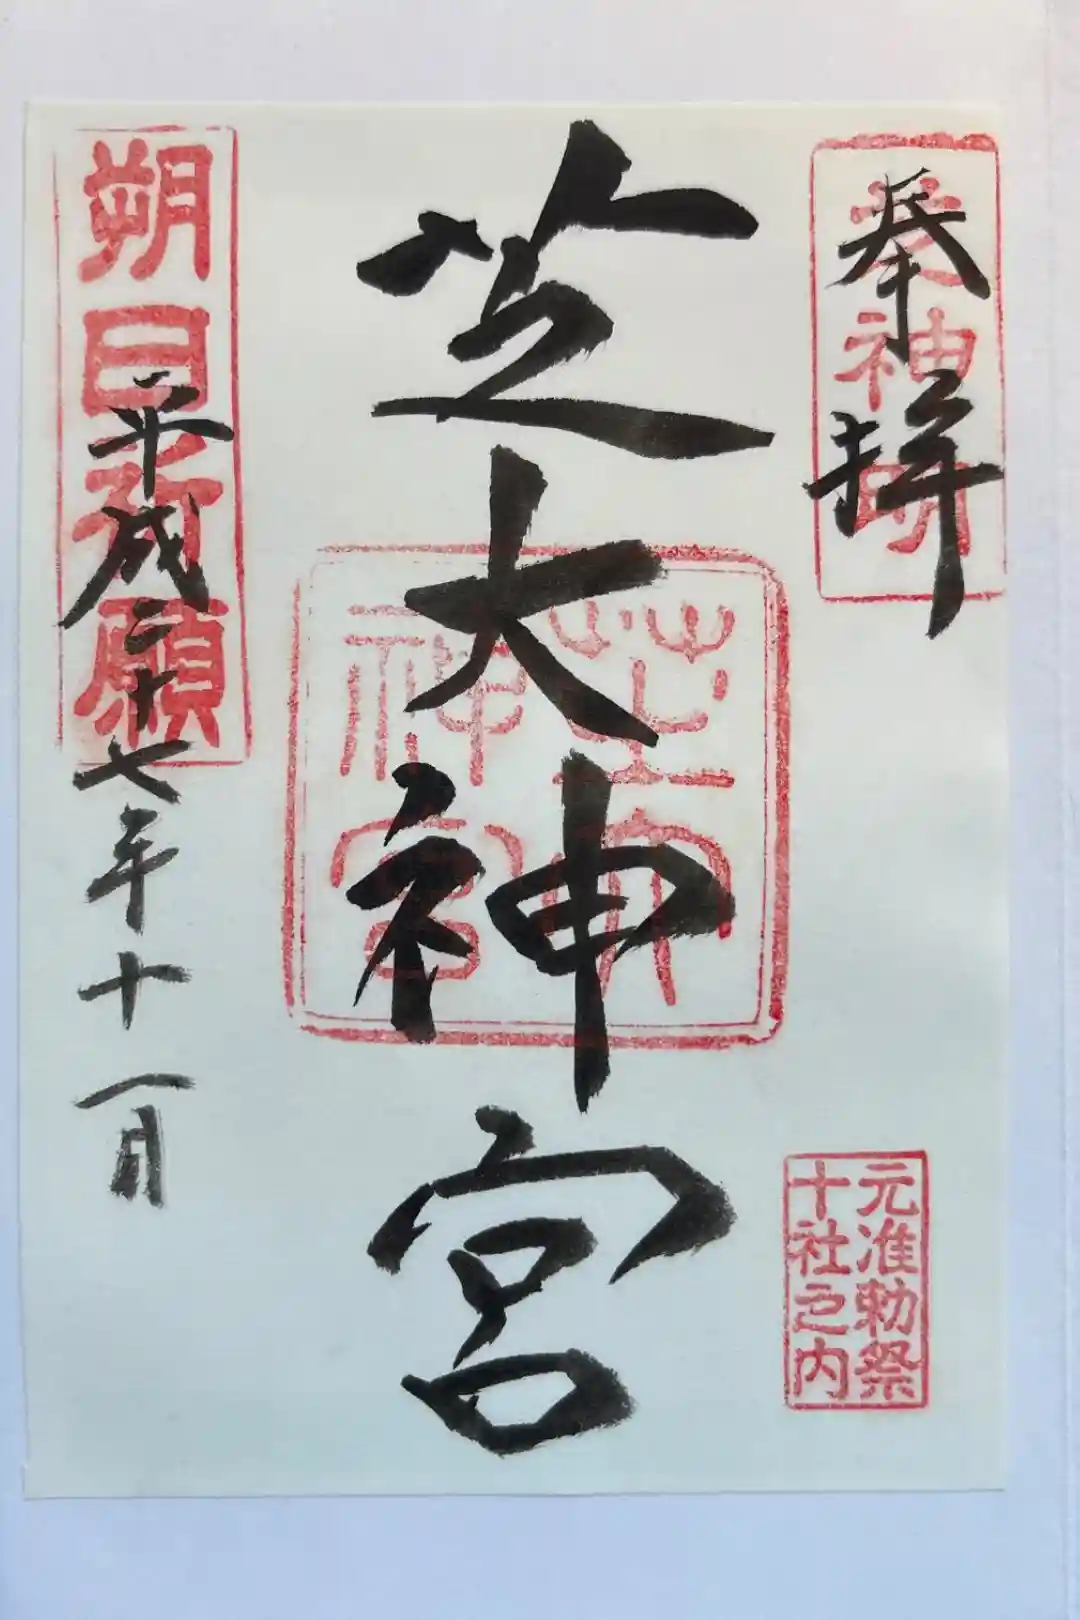 奉拝
芝神明
元准勅祭
十社之内
芝大神宮
芝大
神宮
朔日祈願
平成二十七年十一月